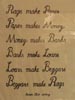 Rags make Paper
Paper makes Money
Money makes Banks
Banks make Loans
Loans make Beggars
Beggars make Rags